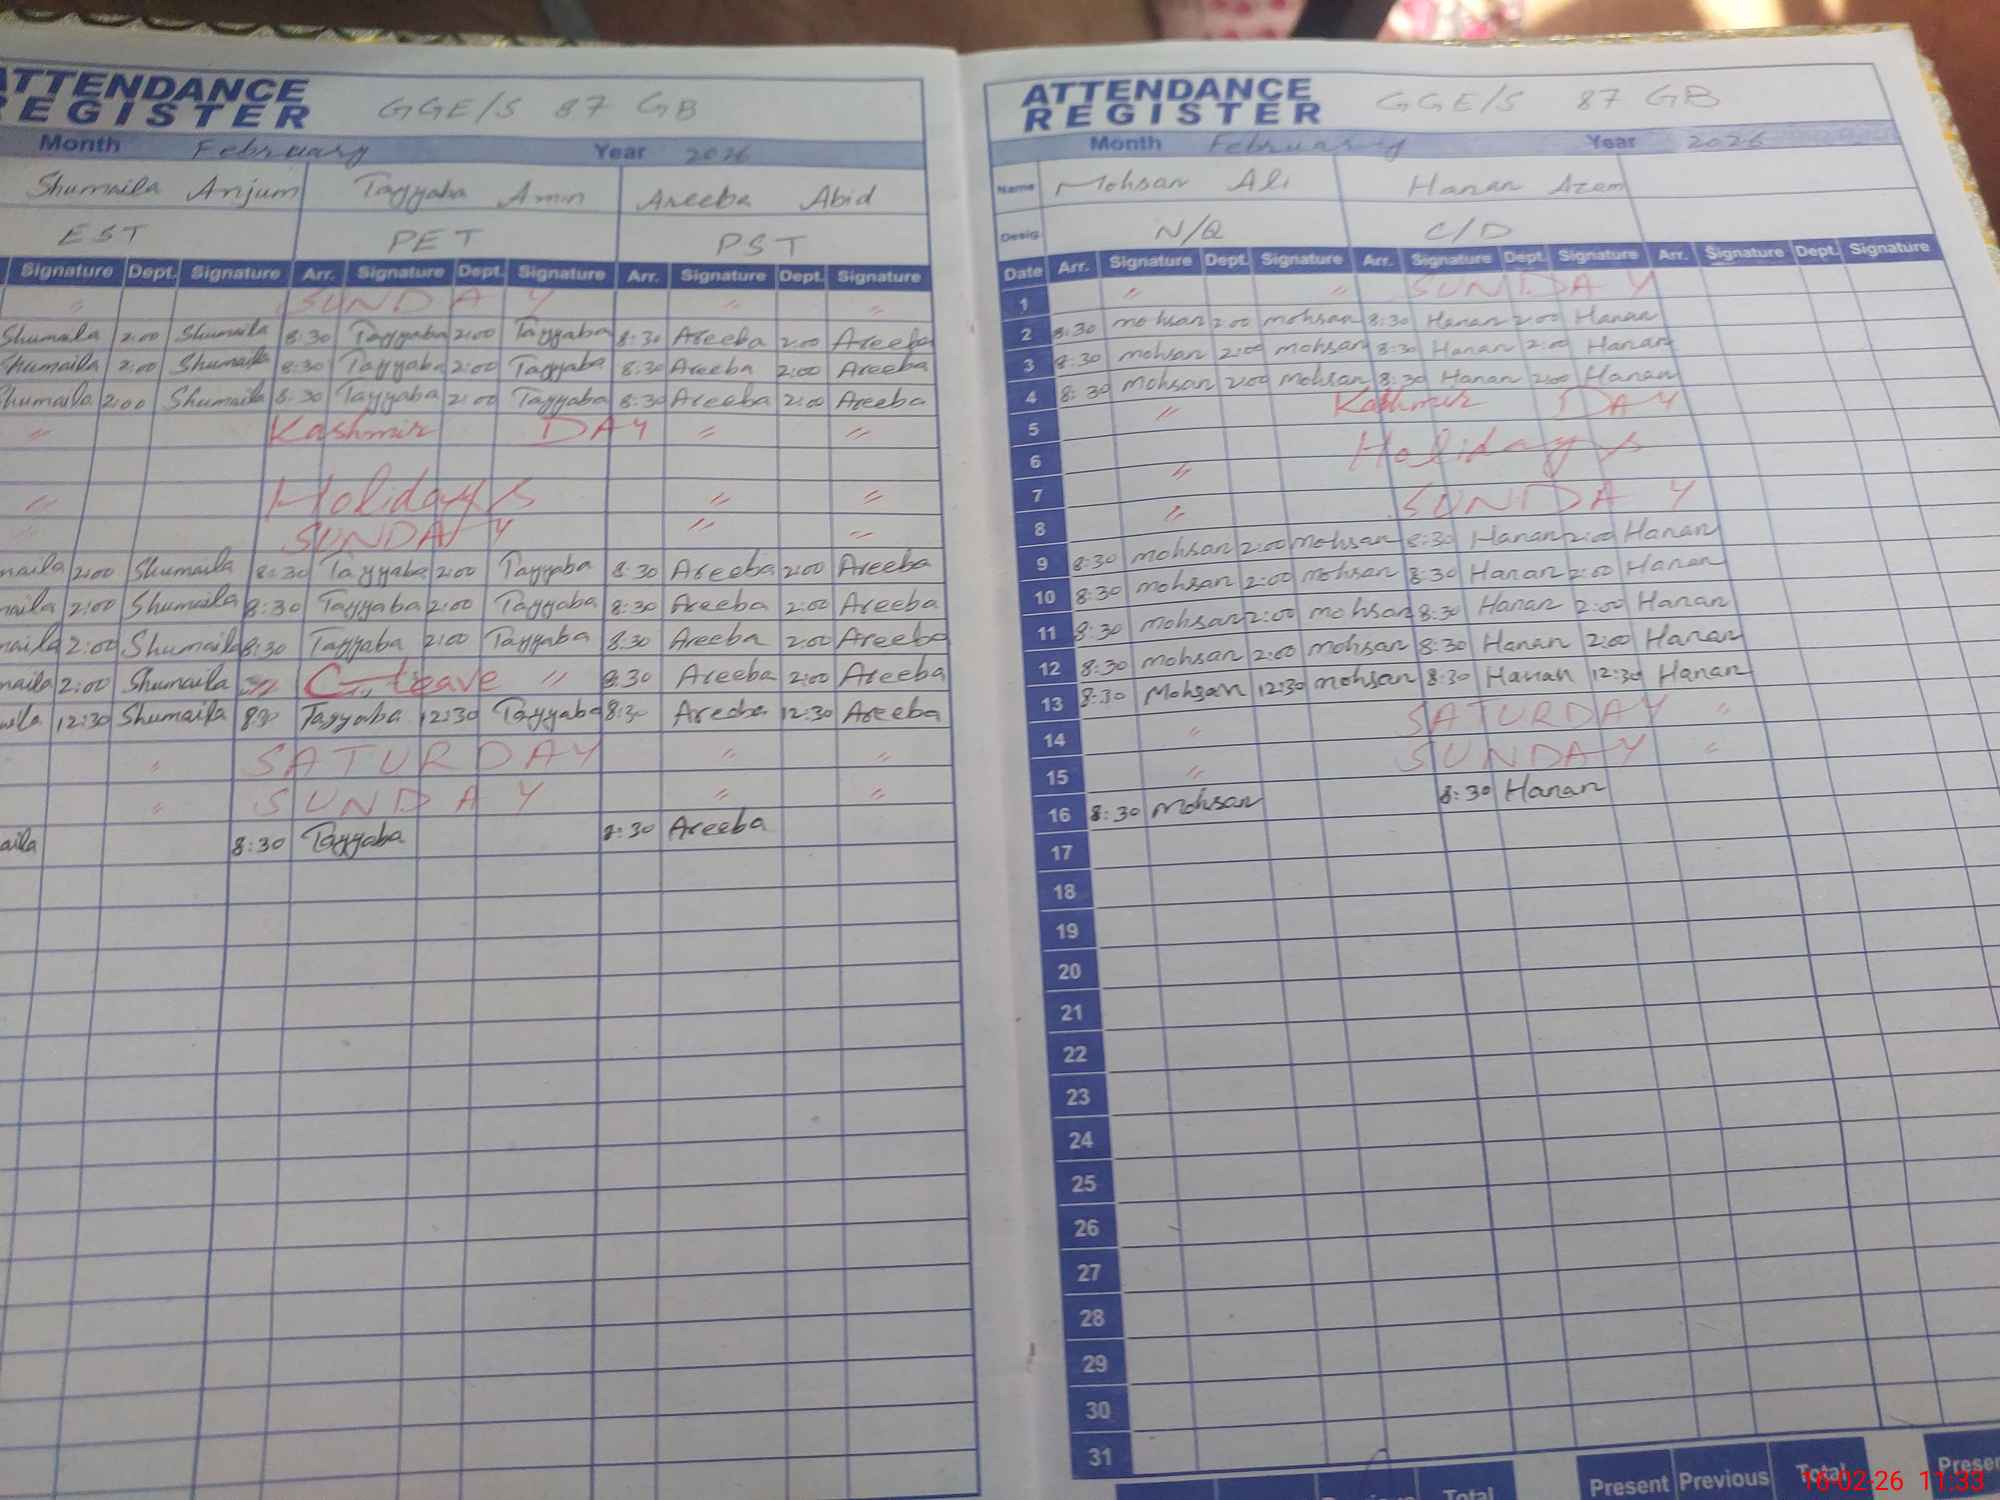 ATTENDANCE
REGISTER GGE/S 87 GB
Month February Year 2026
Shumaila Anjum Tayyaba Amin Areeba Abid
EST PET PST
Signature Dept. Signature Arr. Signature Dept. Signature Arr. Signature Dept. Signature
" SUNDAY " "
Shumaila 2:00 Shumaila 8:30 Tayyaba 2:00 Tayyaba 8:30 Areeba 2:00 Areeba
Shumaila 2:00 Shumaila 8:30 Tayyaba 2:00 Tayyaba 8:30 Areeba 2:00 Areeba
Shumaila 2:00 Shumaila 8:30 Tayyaba 2:00 Tayyaba 8:30 Areeba 2:00 Areeba
" Kashmir DAY " "
" Holidays " "
" SUNDAY " "
maila 2:00 Shumaila 8:30 Tayyaba 2:00 Tayyaba 8:30 Areeba 2:00 Areeba
maila 2:00 Shumaila 8:30 Tayyaba 2:00 Tayyaba 8:30 Areeba 2:00 Areeba
maila 2:00 Shumaila 8:30 Tayyaba 2:00 Tayyaba 8:30 Areeba 2:00 Areeba
maila 2:00 Shumaila " C-Leave " 8:30 Areeba 2:00 Areeba
aila 12:30 Shumaila 8:30 Tayyaba 12:30 Tayyaba 8:30 Areeba 12:30 Areeba
" SATURDAY " "
" SUNDAY " "
aila 8:30 Tayyaba 8:30 Areeba
ATTENDANCE
REGISTER GGE/S 87 GB
Month February Year 2026
Name Mohsan Ali Hanan Azam
Desig. N/Q C/D
Date Arr. Signature Dept. Signature Arr. Signature Dept. Signature Arr. Signature Dept. Signature
1 " " SUNDAY
2 8:30 mohsan 2:00 mohsan 8:30 Hanan 2:00 Hanan
3 8:30 mohsan 2:00 mohsan 8:30 Hanan 2:00 Hanan
4 8:30 mohsan 2:00 mohsan 8:30 Hanan 2:00 Hanan
5 " Kashmir DAY
6 " Holidays
7 " SUNDAY
8
9 8:30 mohsan 2:00 mohsan 8:30 Hanan 2:00 Hanan
10 8:30 mohsan 2:00 mohsan 8:30 Hanan 2:00 Hanan
11 8:30 mohsan 2:00 mohsan 8:30 Hanan 2:00 Hanan
12 8:30 mohsan 2:00 mohsan 8:30 Hanan 2:00 Hanan
13 8:30 Mohsan 12:30 mohsan 8:30 Hanan 12:30 Hanan
14 " SATURDAY "
15 " SUNDAY "
16 8:30 mohsan 8:30 Hanan
17
18
19
20
21
22
23
24
25
26
27
28
29
30
31
Total Present Previous Total Present
16-02-26 11:33